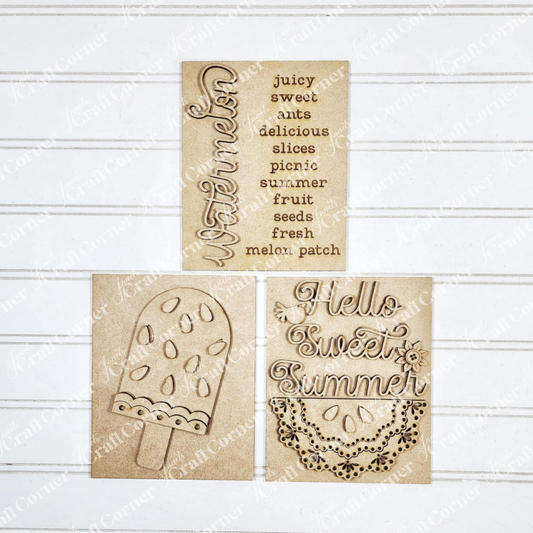 Watermelon
juicy
sweet
ants
delicious
slices
picnic
summer
fruit
seeds
fresh
melon patch
Hello
Sweet
Summer
Craft Corner